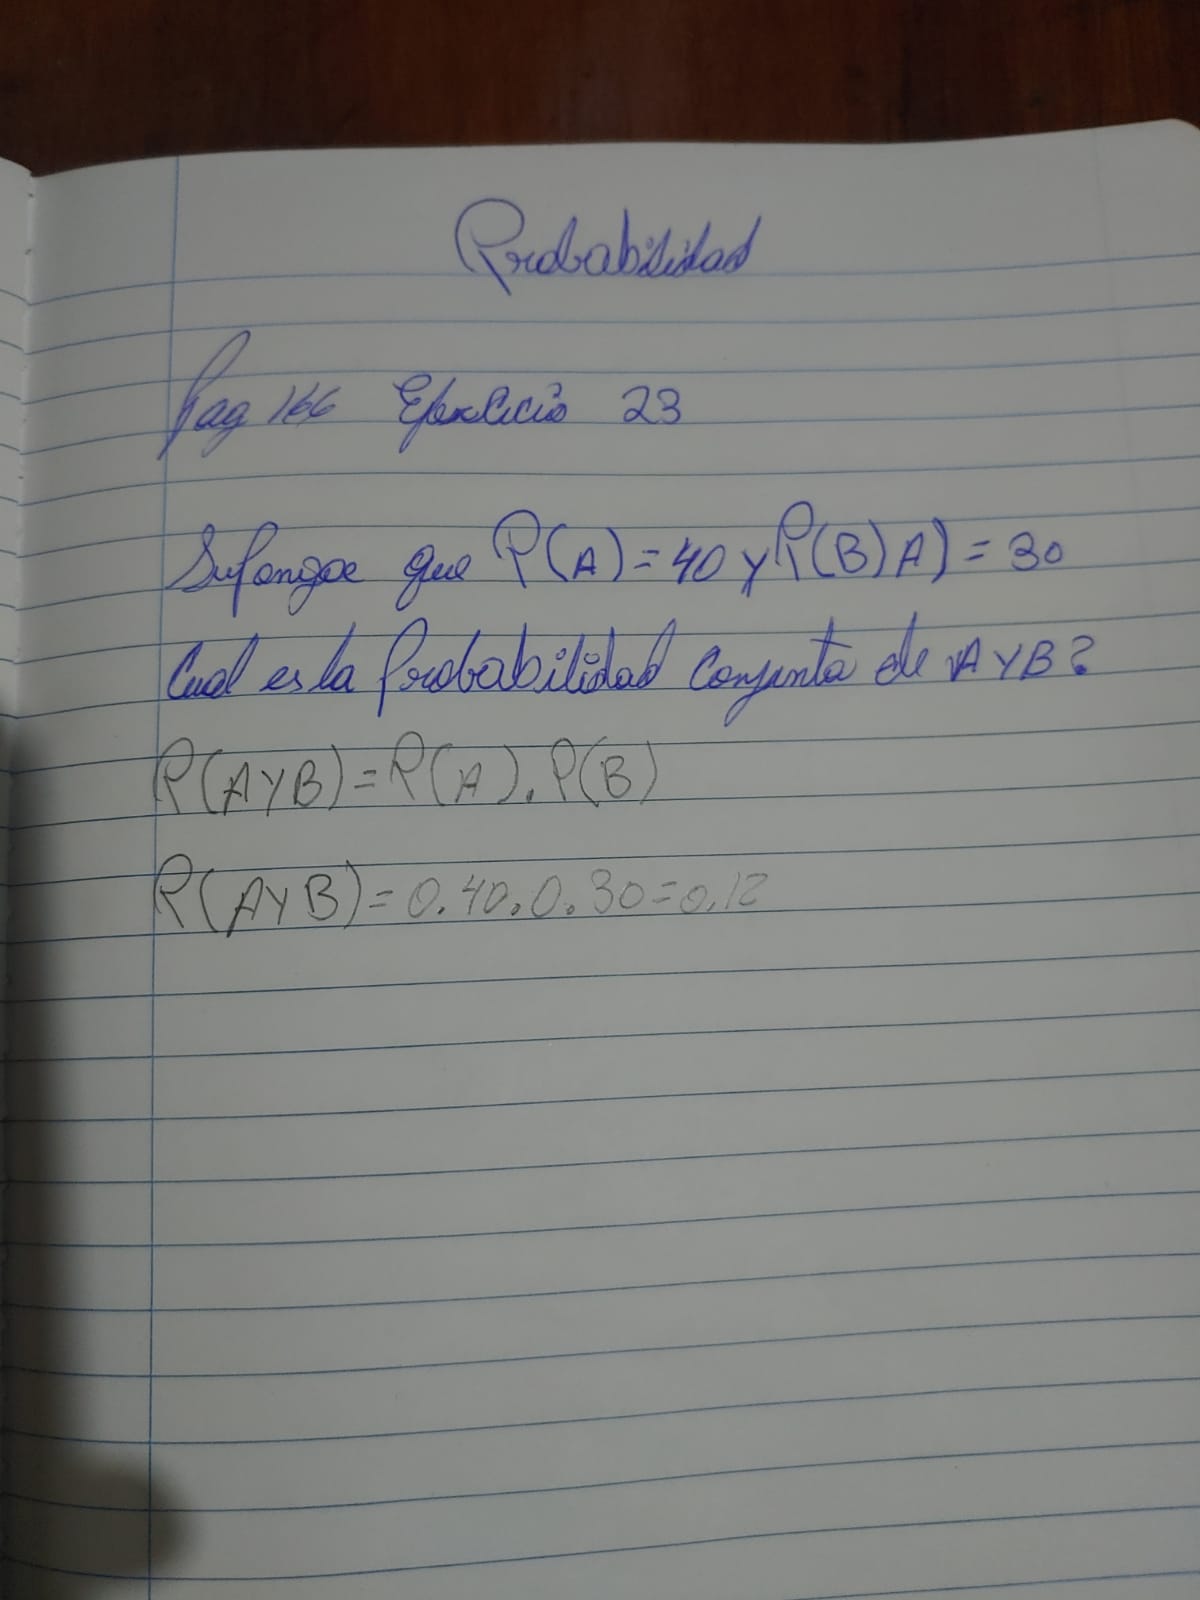 Probabilidad
Pag 166 Ejercicio 23
Suponga que P(A)=40 y P(B)A)=30
Cual es la Probabilidad Conjunta de A Y B?
P(A Y B)=P(A).P(B)
P(A Y B)=0.40.0.30=0.12